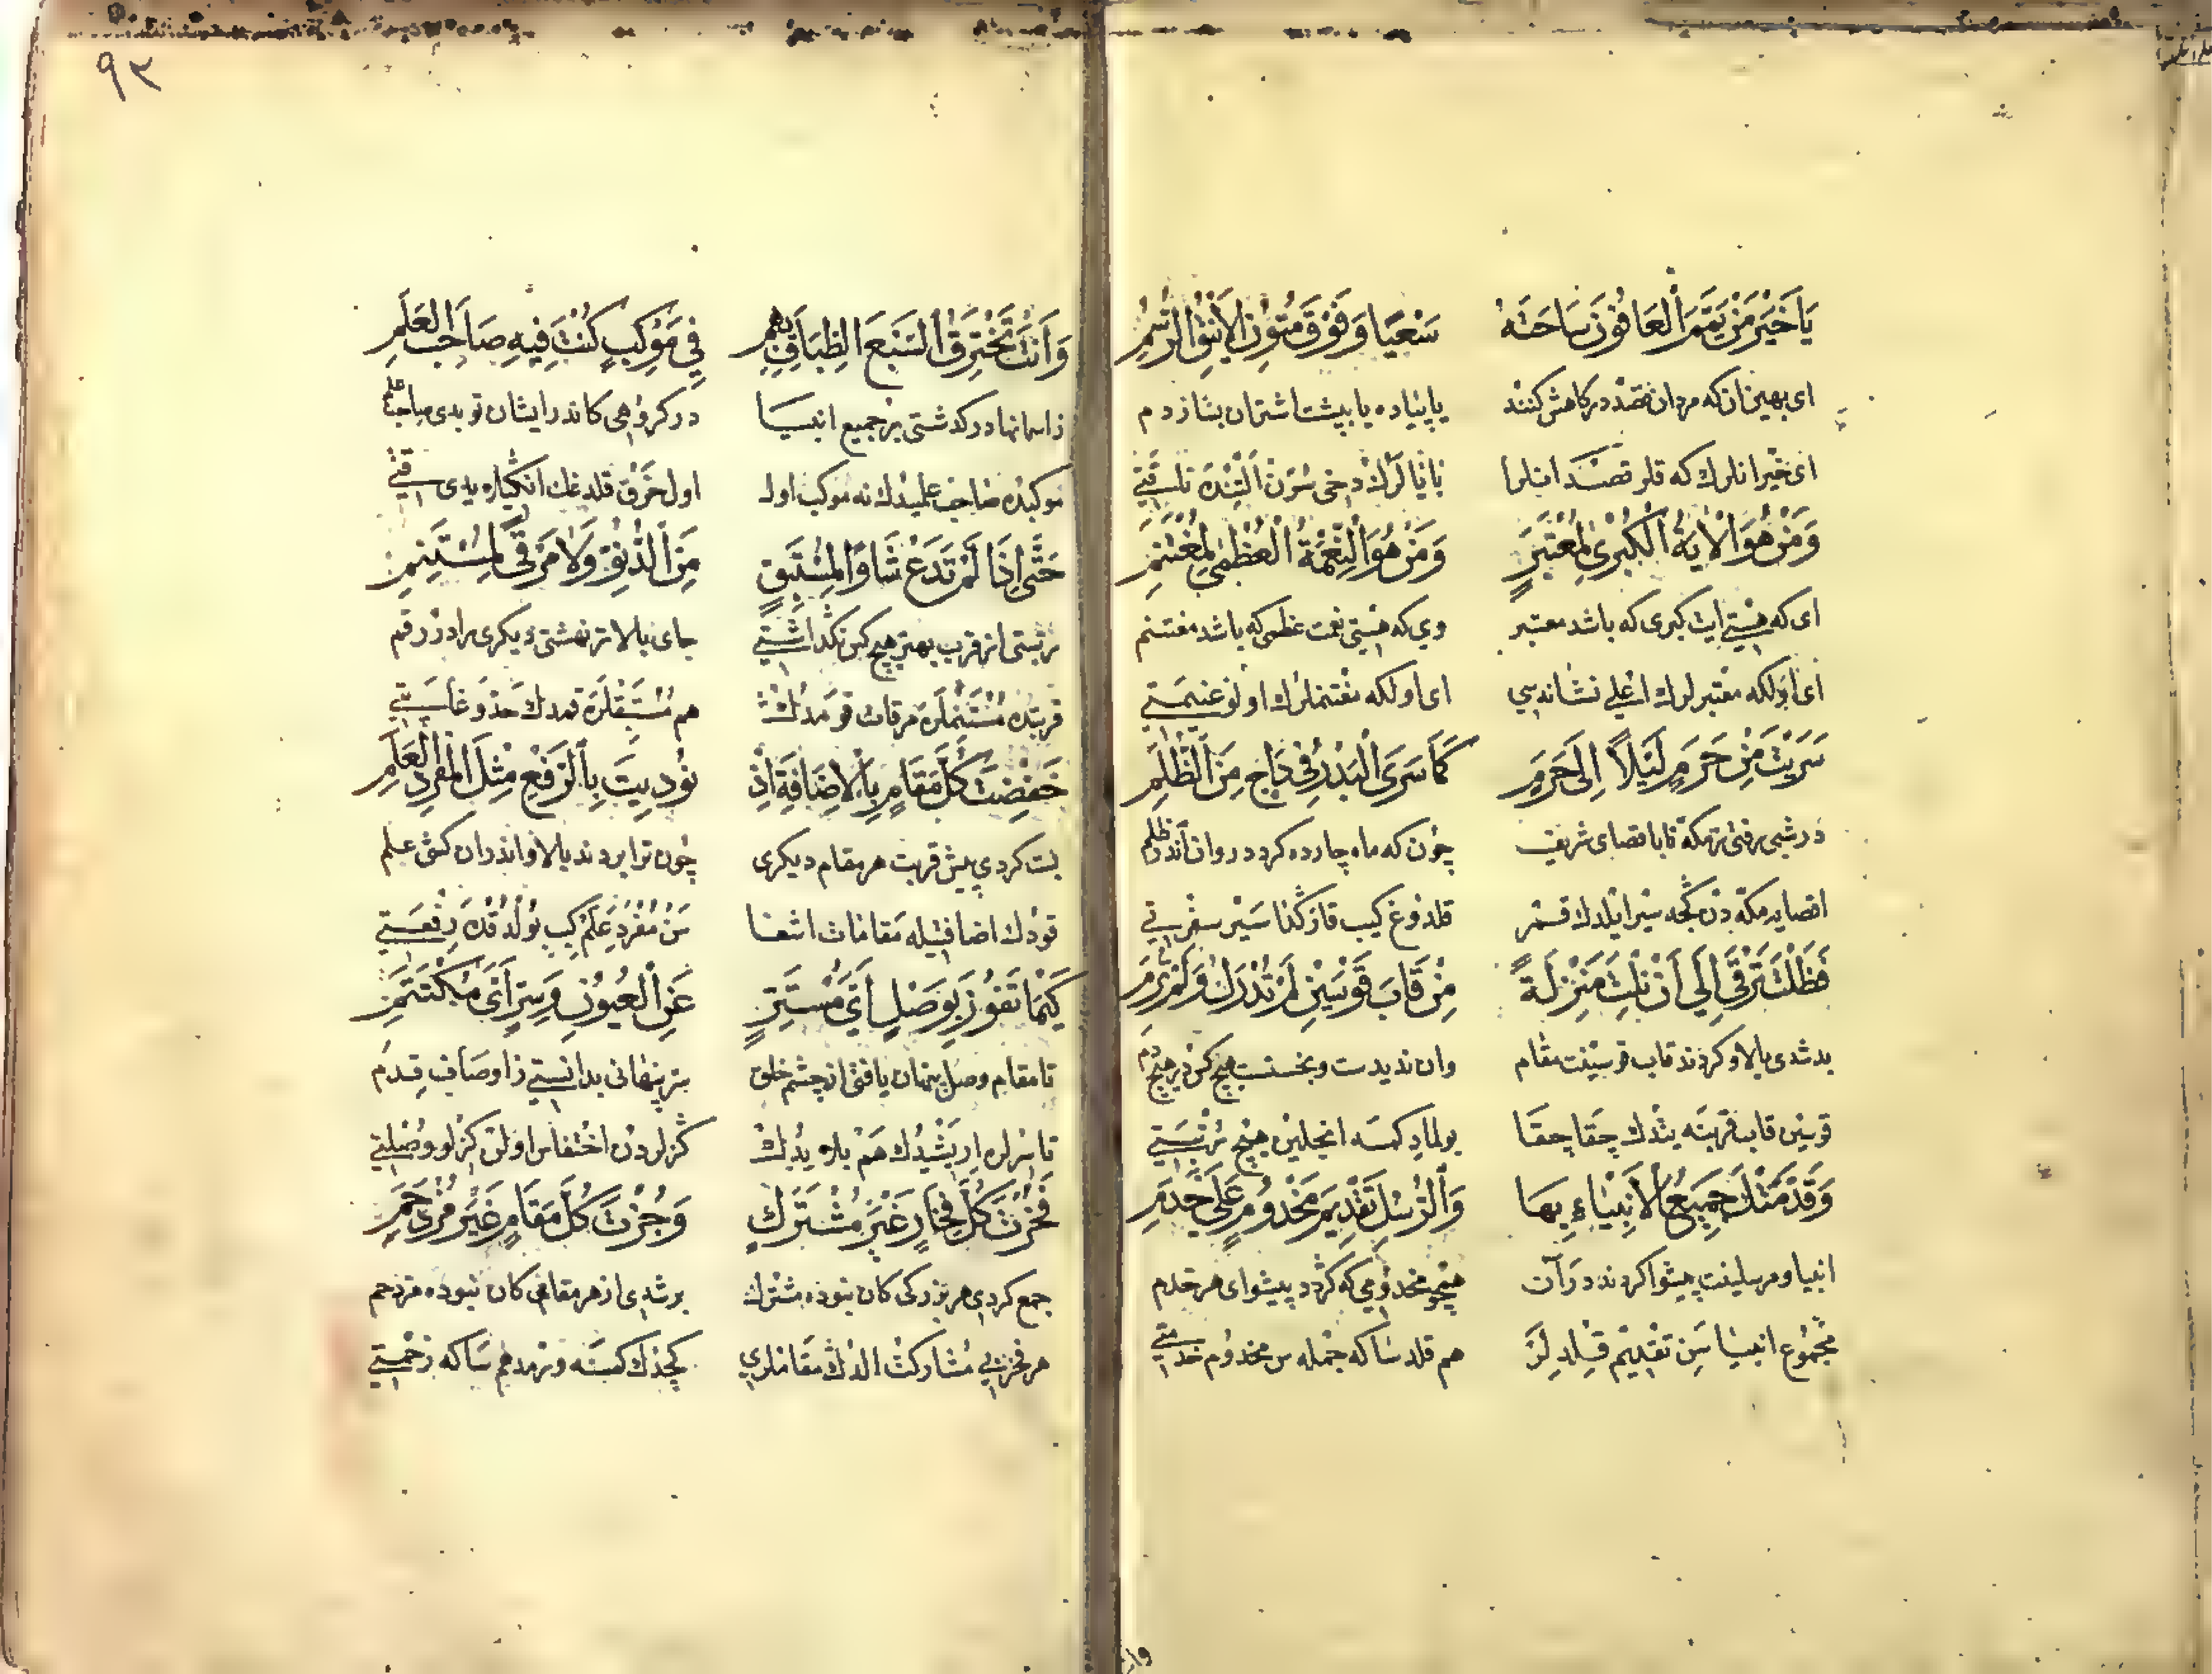 يَا خَيْرَ مَنْ يَمَّمَ الْعَافُونَ سَاحَتَهُ سَعْيًا وَفَوْقَ مُتُونِ الْأَيْنُقِ الرُّسُمِ
ای بهین آن که مردان قصد درکاهش کنند یا پیاده یا بپشت اشتران بشاز دم
ای خیر انلرك كه قلر قصد
وَمَنْ هُوَ الْآيَةُ الْكُبْرَى لِمُعْتَبِرٍ وَمَنْ هُوَ النِّعْمَةُ الْعُظْمَى لِمُغْتَنِمِ
ای که هستی ایت کبری که باشد معتبر وی که هستی نعمت عظمی که باشد مغتنم
ای اولکه معتبرلرك اعلی نشانه سی ای اولکه مغتنملرك اولو غنیمتی
سَرَيْتَ مِنْ حَرَمٍ لَيْلًا إِلَى حَرَمٍ كَمَا سَرَى الْبَدْرُ فِي دَاجٍ مِنَ الظُّلَمِ
در شبی برفتی تو مکه تا باقصای شریف چون که ماه چارده کردد روان اندر ظلم
اقصایه مکه دن کجه سیر ایلدك قمر قلدوغی کیب قاز کلغا سیر سفرتی
فَظَلْتَ تَرْقَى إِلَى أَنْ نِلْتَ مَنْزِلَةً مِنْ قَابَ قَوْسَيْنِ لَمْ تُدْرَكْ وَلَمْ تُرَمِ
بد شدی بالا و کردند قاب قوسینت مقام وان ندیدست و بخست هیچ کس در هیچ دم
قوسین قاب قربتنه یتدك حقا حقا بولمادی کمسه انجلین هیچ مرتبتی
وَقَدَّمَتْكَ جَمِيعُ الْأَنْبِيَاءِ بِهَا وَالرُّسُلِ تَقْدِيمَ مَخْدُومٍ عَلَى خَدَمِ
انبیا و مرسلینت پیشوا کردند در آن همچو مخدومی که کردد پیشوای هر خدم
مجموع انبیا سن تقدیم قلدلر هم قلد ساکه جمله س مخدوم خدمتی
٩٣
وَأَنْتَ تَخْتَرِقُ السَّبْعَ الطِّبَاقَ بِهِمْ فِي مَوْكِبٍ كُنْتَ فِيهِ صَاحِبَ الْعَلَمِ
زاسمانها در کذشتی بر جمیع انبیا در کروهی کاندر ایشان تو بدی صاحب علم
موکبده صاحب علمیدك نه موکب اول اول خرق قلدغك
حَتَّى إِذَا لَمْ تَدَعْ شَأْوًا لِمُسْتَبِقٍ مِنَ الدُّنُوِّ وَلَا مَرْقًى لِمُسْتَنِمِ
رتبتی از قرب بهتر هیچ کس نکذاشتی جای بالاتر نهشتی دیکری را در رقم
قربتده مستنملره مرقات قومدك هم مستبقلره قمدك حد و غایتی
خَفَضْتَ كُلَّ مَقَامٍ بِالْإِضَافَةِ إِذْ نُودِيتَ بِالرَّفْعِ مِثْلَ الْمُفْرَدِ الْعَلَمِ
پست کردی پیش قربت هر مقام دیکری چون ترا بردند بالا و اندران کشتی علم
قودك اضافتیله مقامات اشغا سن مفرد علم کیب بولدقده رفعتی
كَيْمَا تَفُوزَ بِوَصْلٍ أَيِّ مُسْتَتِرٍ عَنِ الْعُيُونِ وَسِرٍّ أَيِّ مُكْتَتَمِ
تا مقام وصل پنهان یافتی از چشم خلق سر پنهانی بدانستی ز اوصاف قدم
تا سرلره ارشدك هم بله یدك کزلردن اختفاسی اولن کزلو وصلتی
فَحُزْتَ كُلَّ فَخَارٍ غَيْرَ مُشْتَرَكٍ وَجُزْتَ كُلَّ مَقَامٍ غَيْرَ مُزْدَحَمِ
جمع کردی هر بزرکی کان نبوده مشترك برشدی از هر مقامی کان نبوده مزدحم
هر فخر بی مشارکت الدك مقاملری کچدك کمسه ویرمدهم ساکه زحمتی